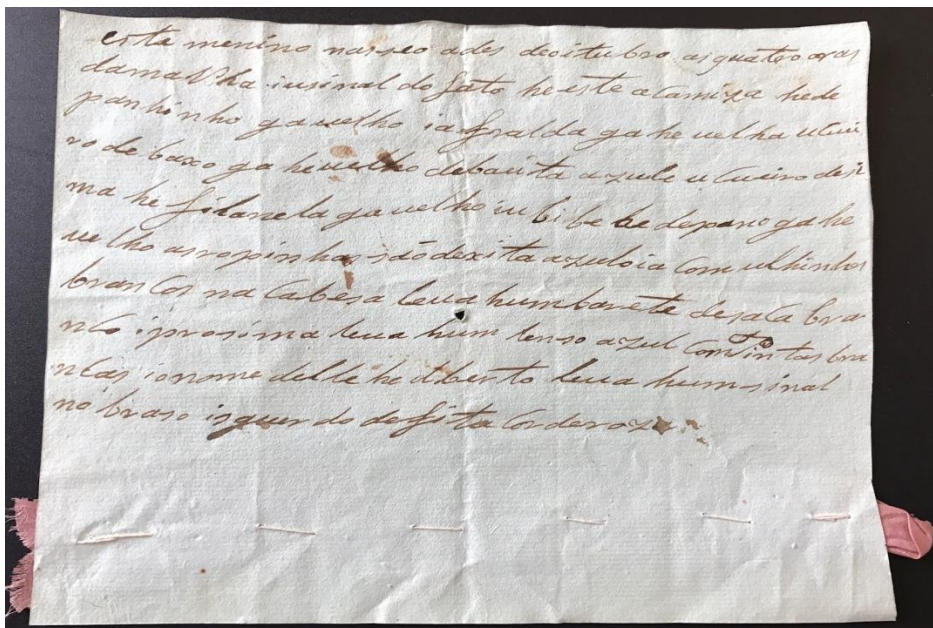 este menino nasseo ades deoitubro asquatro oras
damanha iusinal do fato he este a Camiza hede
panhinho ga uelho ia fralda ga he uelha u Cuei
ro de baxo ga he uelho debauita azule u Cueiro desi
ma he filanela ga uelho iu bibe he depano ga he
uelho asropinhas são dexita azuloia Com ulhinhos
brancos na Cabesa leua hum barete de
nco iprosima leua hum lenso azul Com pintas bra
ncas ionome delle he leua hum sinal
no braso isquerdo de fita Cor de roza